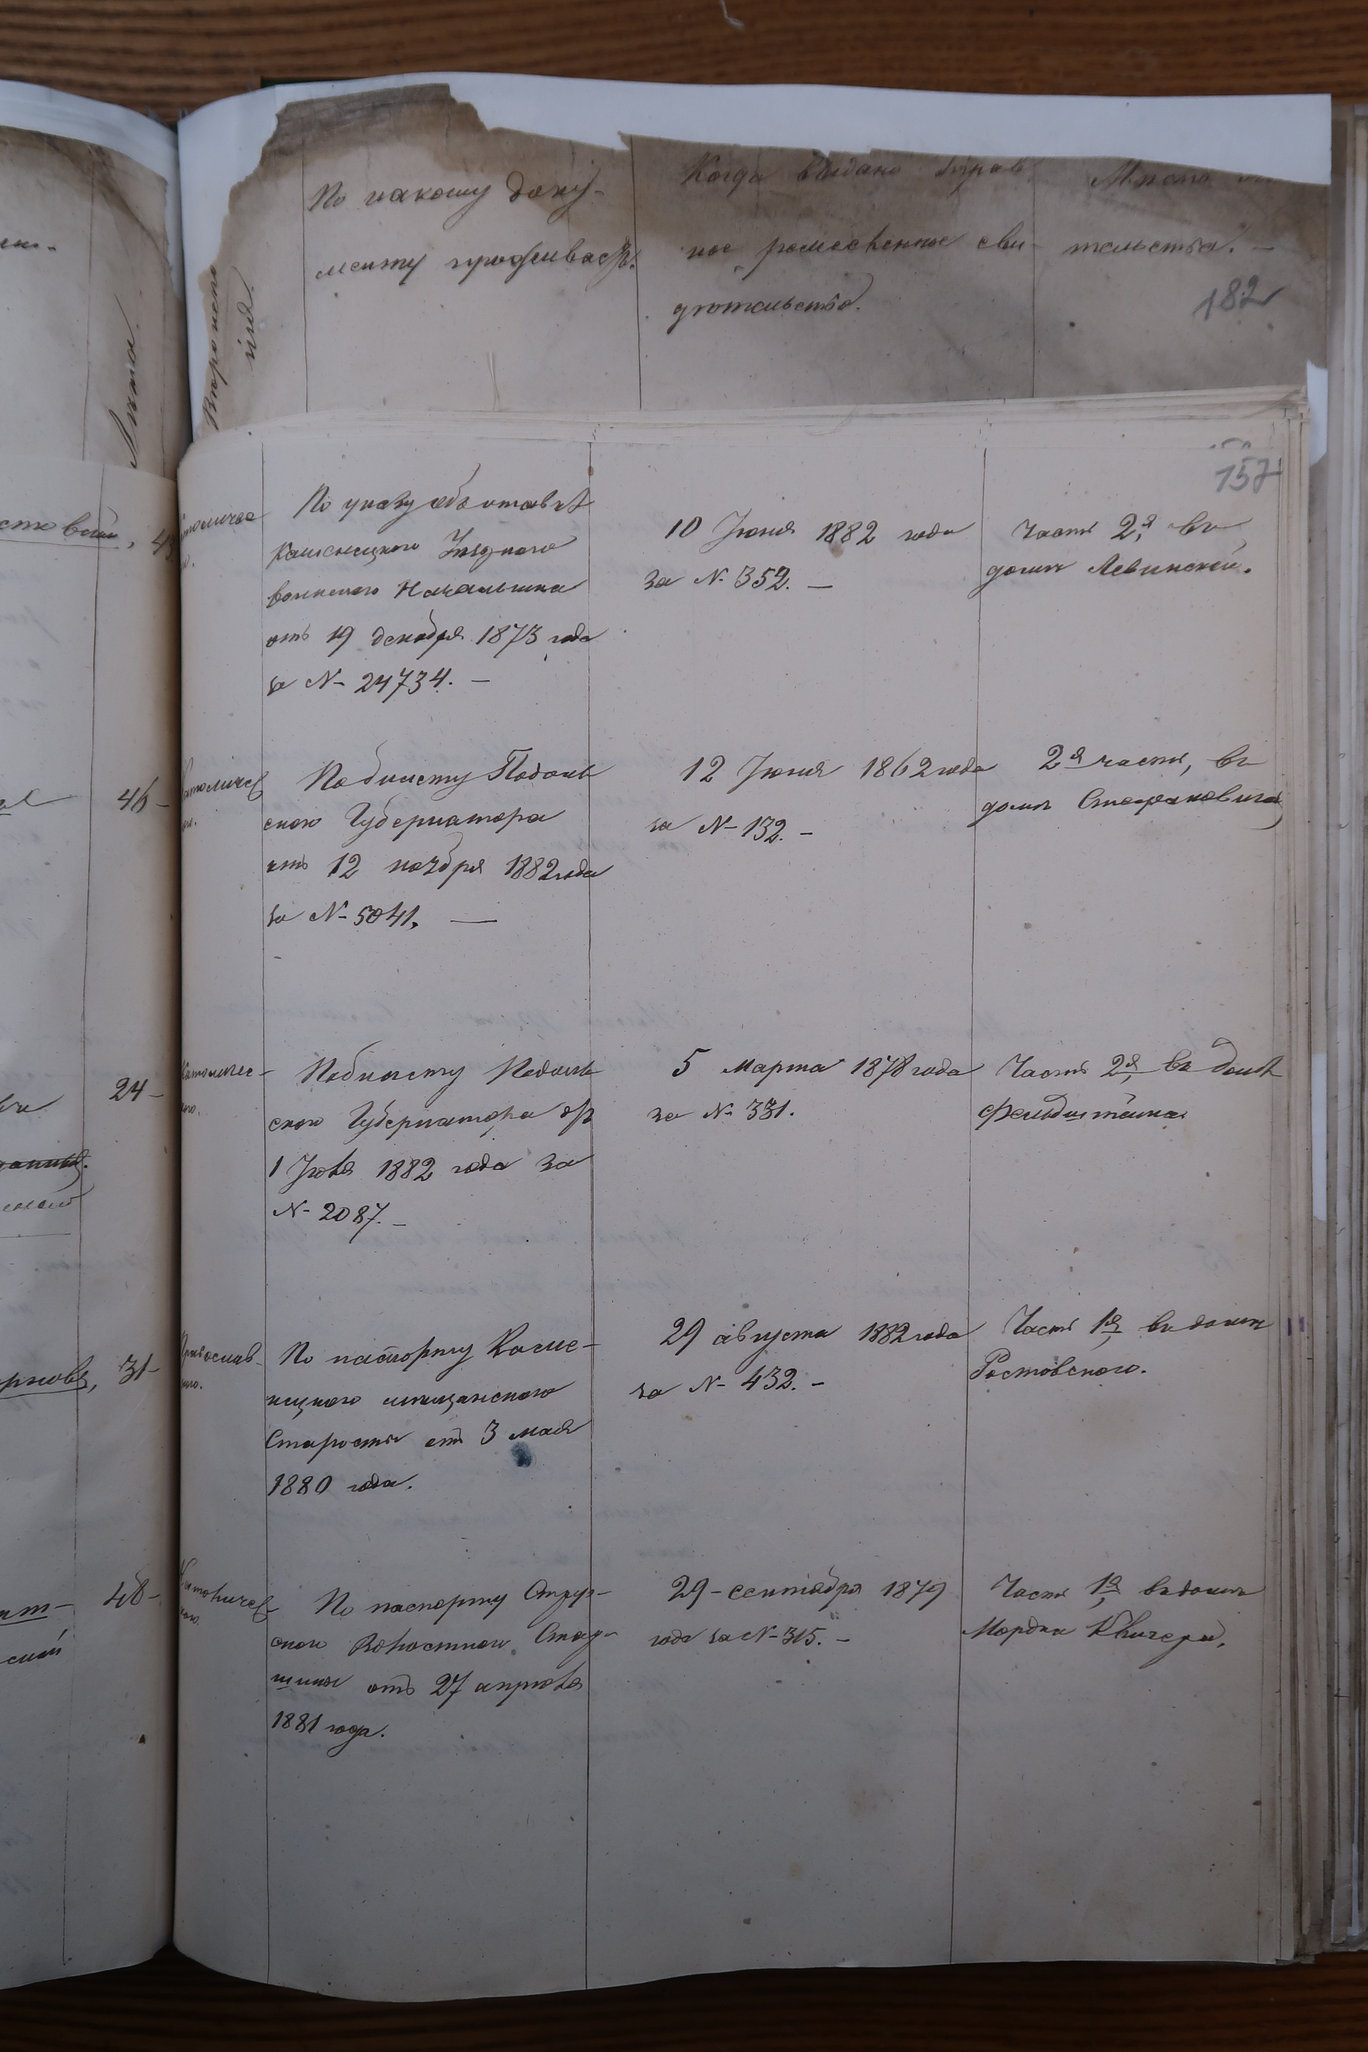 По какому доку-
менту проживаетъ.
Когда выдано Управ
ное ремесленное сви-
дѣтельство.
Мѣсто
тельства. —
182
Вѣроиспо
Лѣта.
157
стовый,
католичес
По указу объ отставкѣ
Каменецкого Уѣзднаго
воинскаго Начальника
отъ 19 декабря 1873 года
за № 24734. —
10 Іюня 1882 года
за № 352. —
Часть 2я, въ
домѣ Левинской.
46 —
католичес
По билету Подоль
скаго Губернатора
отъ 12 ноября 1882 года
за № 5041. —
12 Іюня 1862 года
за № 132. —
2я часть, въ
домѣ Стефановича
24 —
католичес-
каго.
По билету Подоль
скаго Губернатора отъ
1 Іюля 1882 года за
№ 2087. —
5 Марта 1878 года
за № 331.
Часть 2я, въ домѣ
Фельдштейна
31 —
Православ-
наго.
По паспорту Каме-
нецкаго мѣщанскаго
Старосты отъ 3 мая
1880 года.
29 августа 1882 года
за № 432. —
Часть 1я, въ домѣ
Ростовского.
48 —
католичес
каго.
По паспорту
скаго Волостнаго Стар-
шины отъ 27 апрѣля
1881 года.
29 — сентября 1879
года за № 315. —
Часть 1я, въ домѣ
Мордка